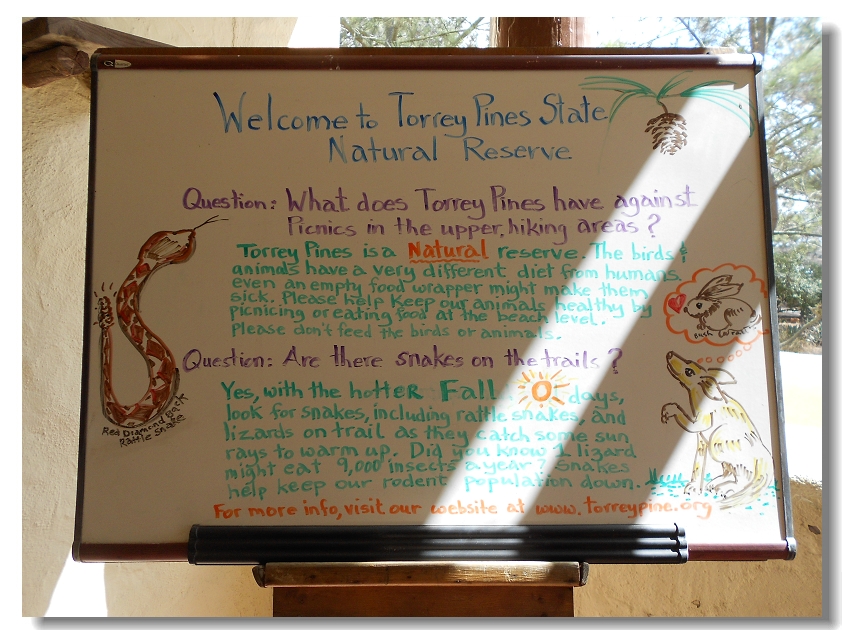 Welcome to Torrey Pines State
Natural Reserve
Question: What does Torrey Pines have against
Picnics in the upper, hiking areas?
Torrey Pines is a Natural reserve. The birds &
animals have a very different diet from humans.
even an empty food wrapper might make them
sick. Please help keep our animals healthy by
picnicing or eating food at the beach level.
Please don't feed the birds or animals.
Question: Are there snakes on the trails?
Yes, with the hotter Fall days,
look for snakes, including rattle snakes, and
lizards on trail as they catch some sun
rays to warm up. Did you know 1 lizard
might eat 9,000 insects a year? Snakes
help keep our rodent population down.
For more info, visit our website at www.torreypine.org
Red Diamond Back
Rattle Snake
Bush